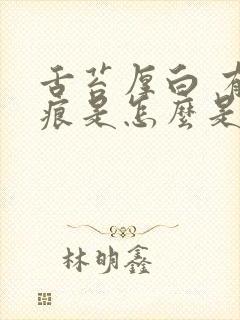 舌苔厚白 有
痕是怎麼是
林明鑫